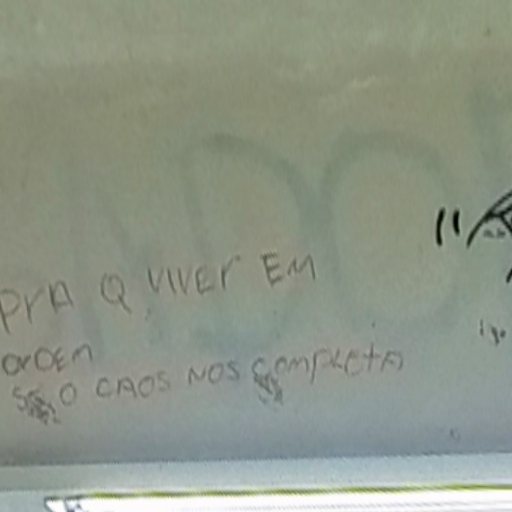 PrA Q VIVEr EM
OrDEM
SE O CAOS NOS COMPLETA